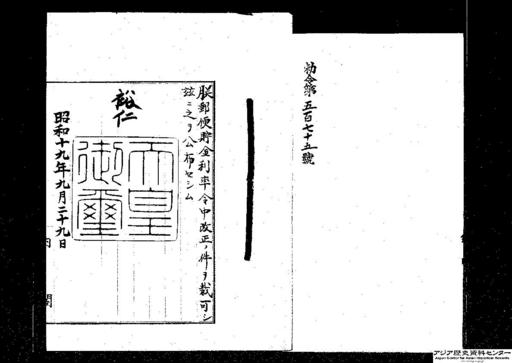 勅令第五百七十五號
朕郵便貯金利率令中改正ノ件ヲ裁可シ
玆ニ之ヲ公布セシム
裕仁
天皇
御璽
昭和十九年九月二十九日
内閣
アジア歴史資料センター
Japan Center for Asian Historical Records